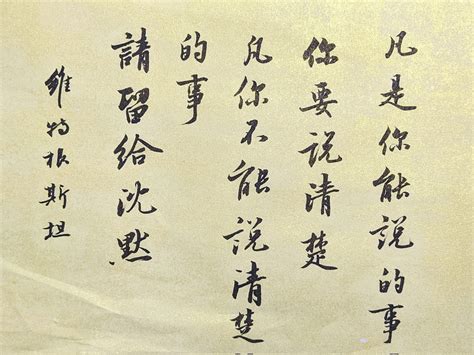 凡是你能說的事
你要說清楚
凡你不能說清楚
的事
請留給沈默
維特根斯坦